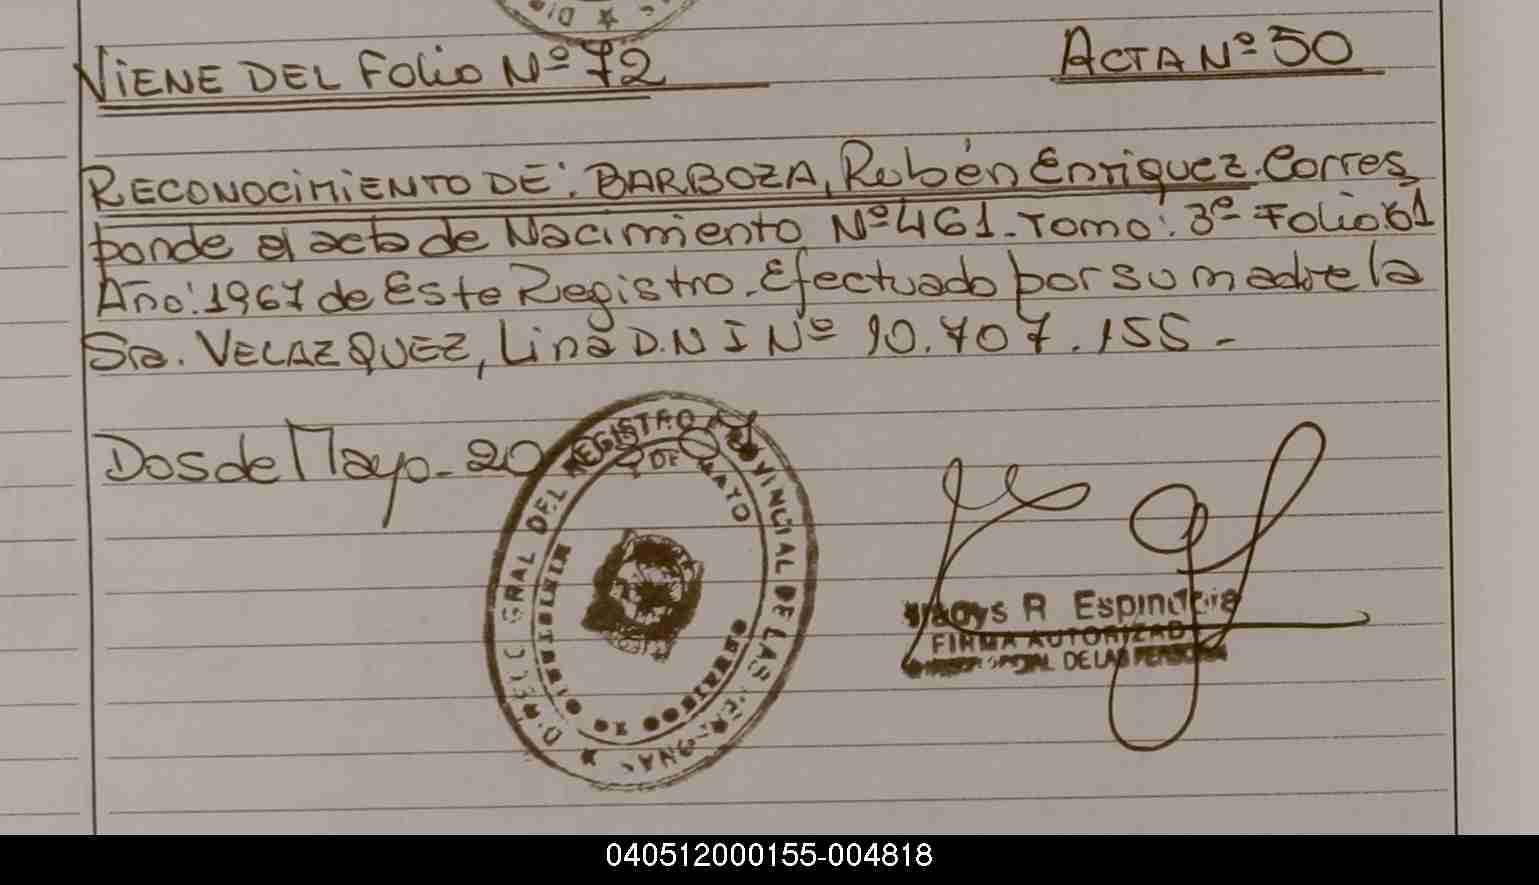 VIENE DEL Folio Nº 72
ACTA Nº 50
RECONOCIMIENTO DE: BARBOZA, Rubén Enriquez. Corres
ponde al acta de Nacimiento Nº 461. Tomo: 3º Folio 61
Año: 1967 de Este Registro. Efectuado por su madre la
Sra. VELAZQUEZ, Lina D.N I Nº 10.707.155.-
Dos de Mayo. 20
GRAL DEL REGISTRO PROVINCIAL DE LAS
DE MAYO
R Espindola
FIRMA AUTORIZAD
DE LAS PERSONA
040512000155-004818